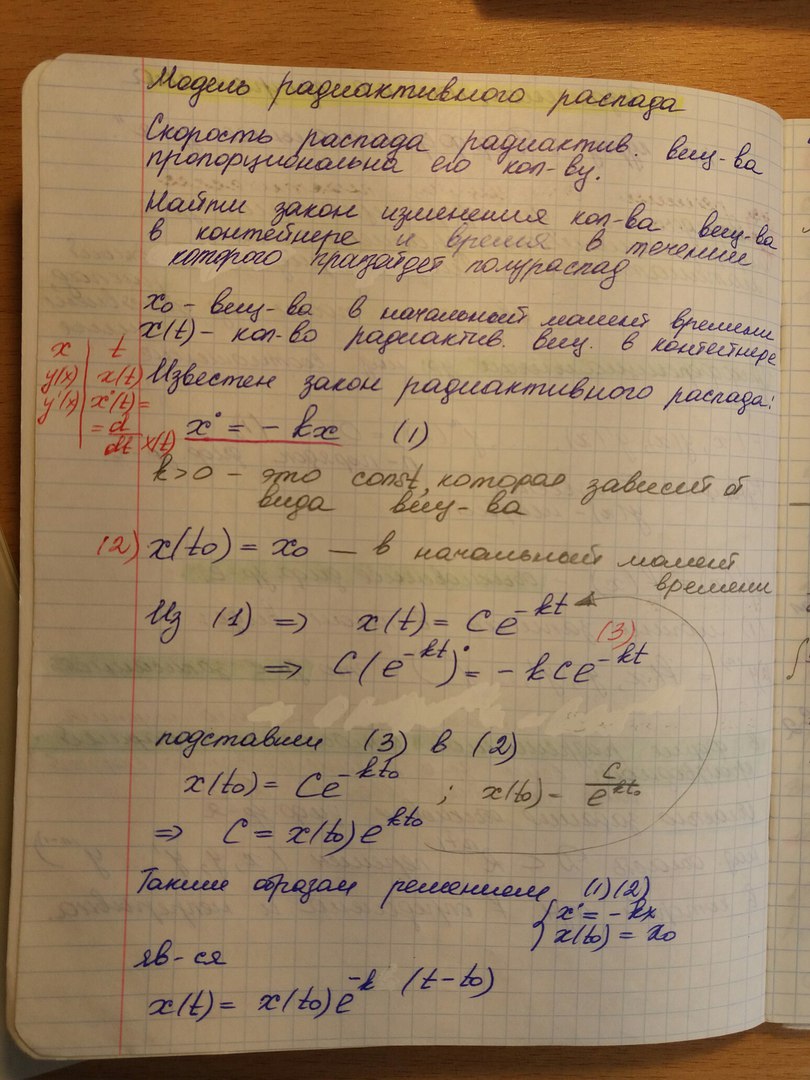 Модель радиактивного распада
Скорость распада радиактив. вещ-ва
пропорциональна его кол-ву.
Найти закон изменения кол-ва вещ-ва
в контейнере и время в течении
которого празайдет полураспад
x₀ – вещ-ва в начальный момент времени
x(t) – кол-во радиактив. вещ. в контейнере
x | t
y(x) | x(t)
y'(x) | x˙(t) =
= d/dt x(t)
Известен закон радиактивного распада:
x˙ = – kx (1)
k > 0 – это const, которая зависит от
вида вещ-ва
(2) x(t₀) = x₀ — в начальный момент
времени
Из (1) => x(t) = Ce^(–kt)
(3)
=> C(e^(–kt))˙ = –kCe^(–kt)
подставим (3) в (2)
x(t₀) = Ce^(–kt₀) ; x(t₀) – C/e^(kt₀)
=> C = x(t₀)e^(kt₀)
Таким образом решением (1)(2)
{ x˙ = –kx
x(t₀) = x₀
яв-ся
x(t) = x(t₀)e^(–k (t–t₀))